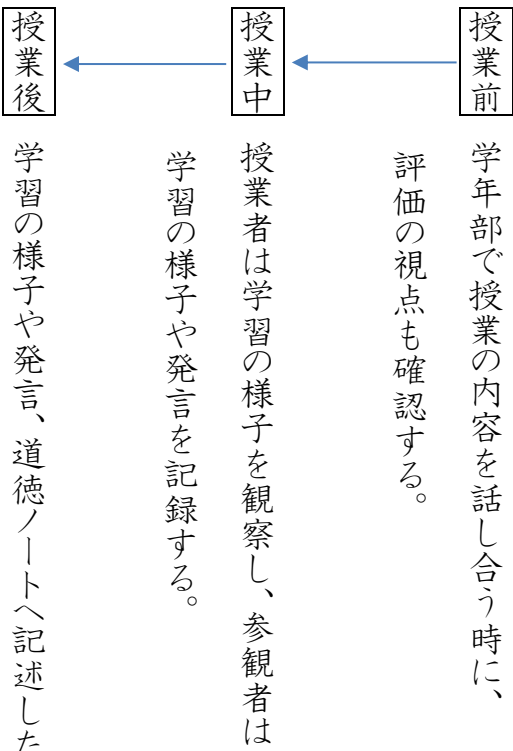 授業前
学年部で授業の内容を話し合う時に、
評価の視点も確認する。
授業中
授業者は学習の様子を観察し、参観者は
学習の様子や発言を記録する。
授業後
学習の様子や発言、道徳ノートへ記述した